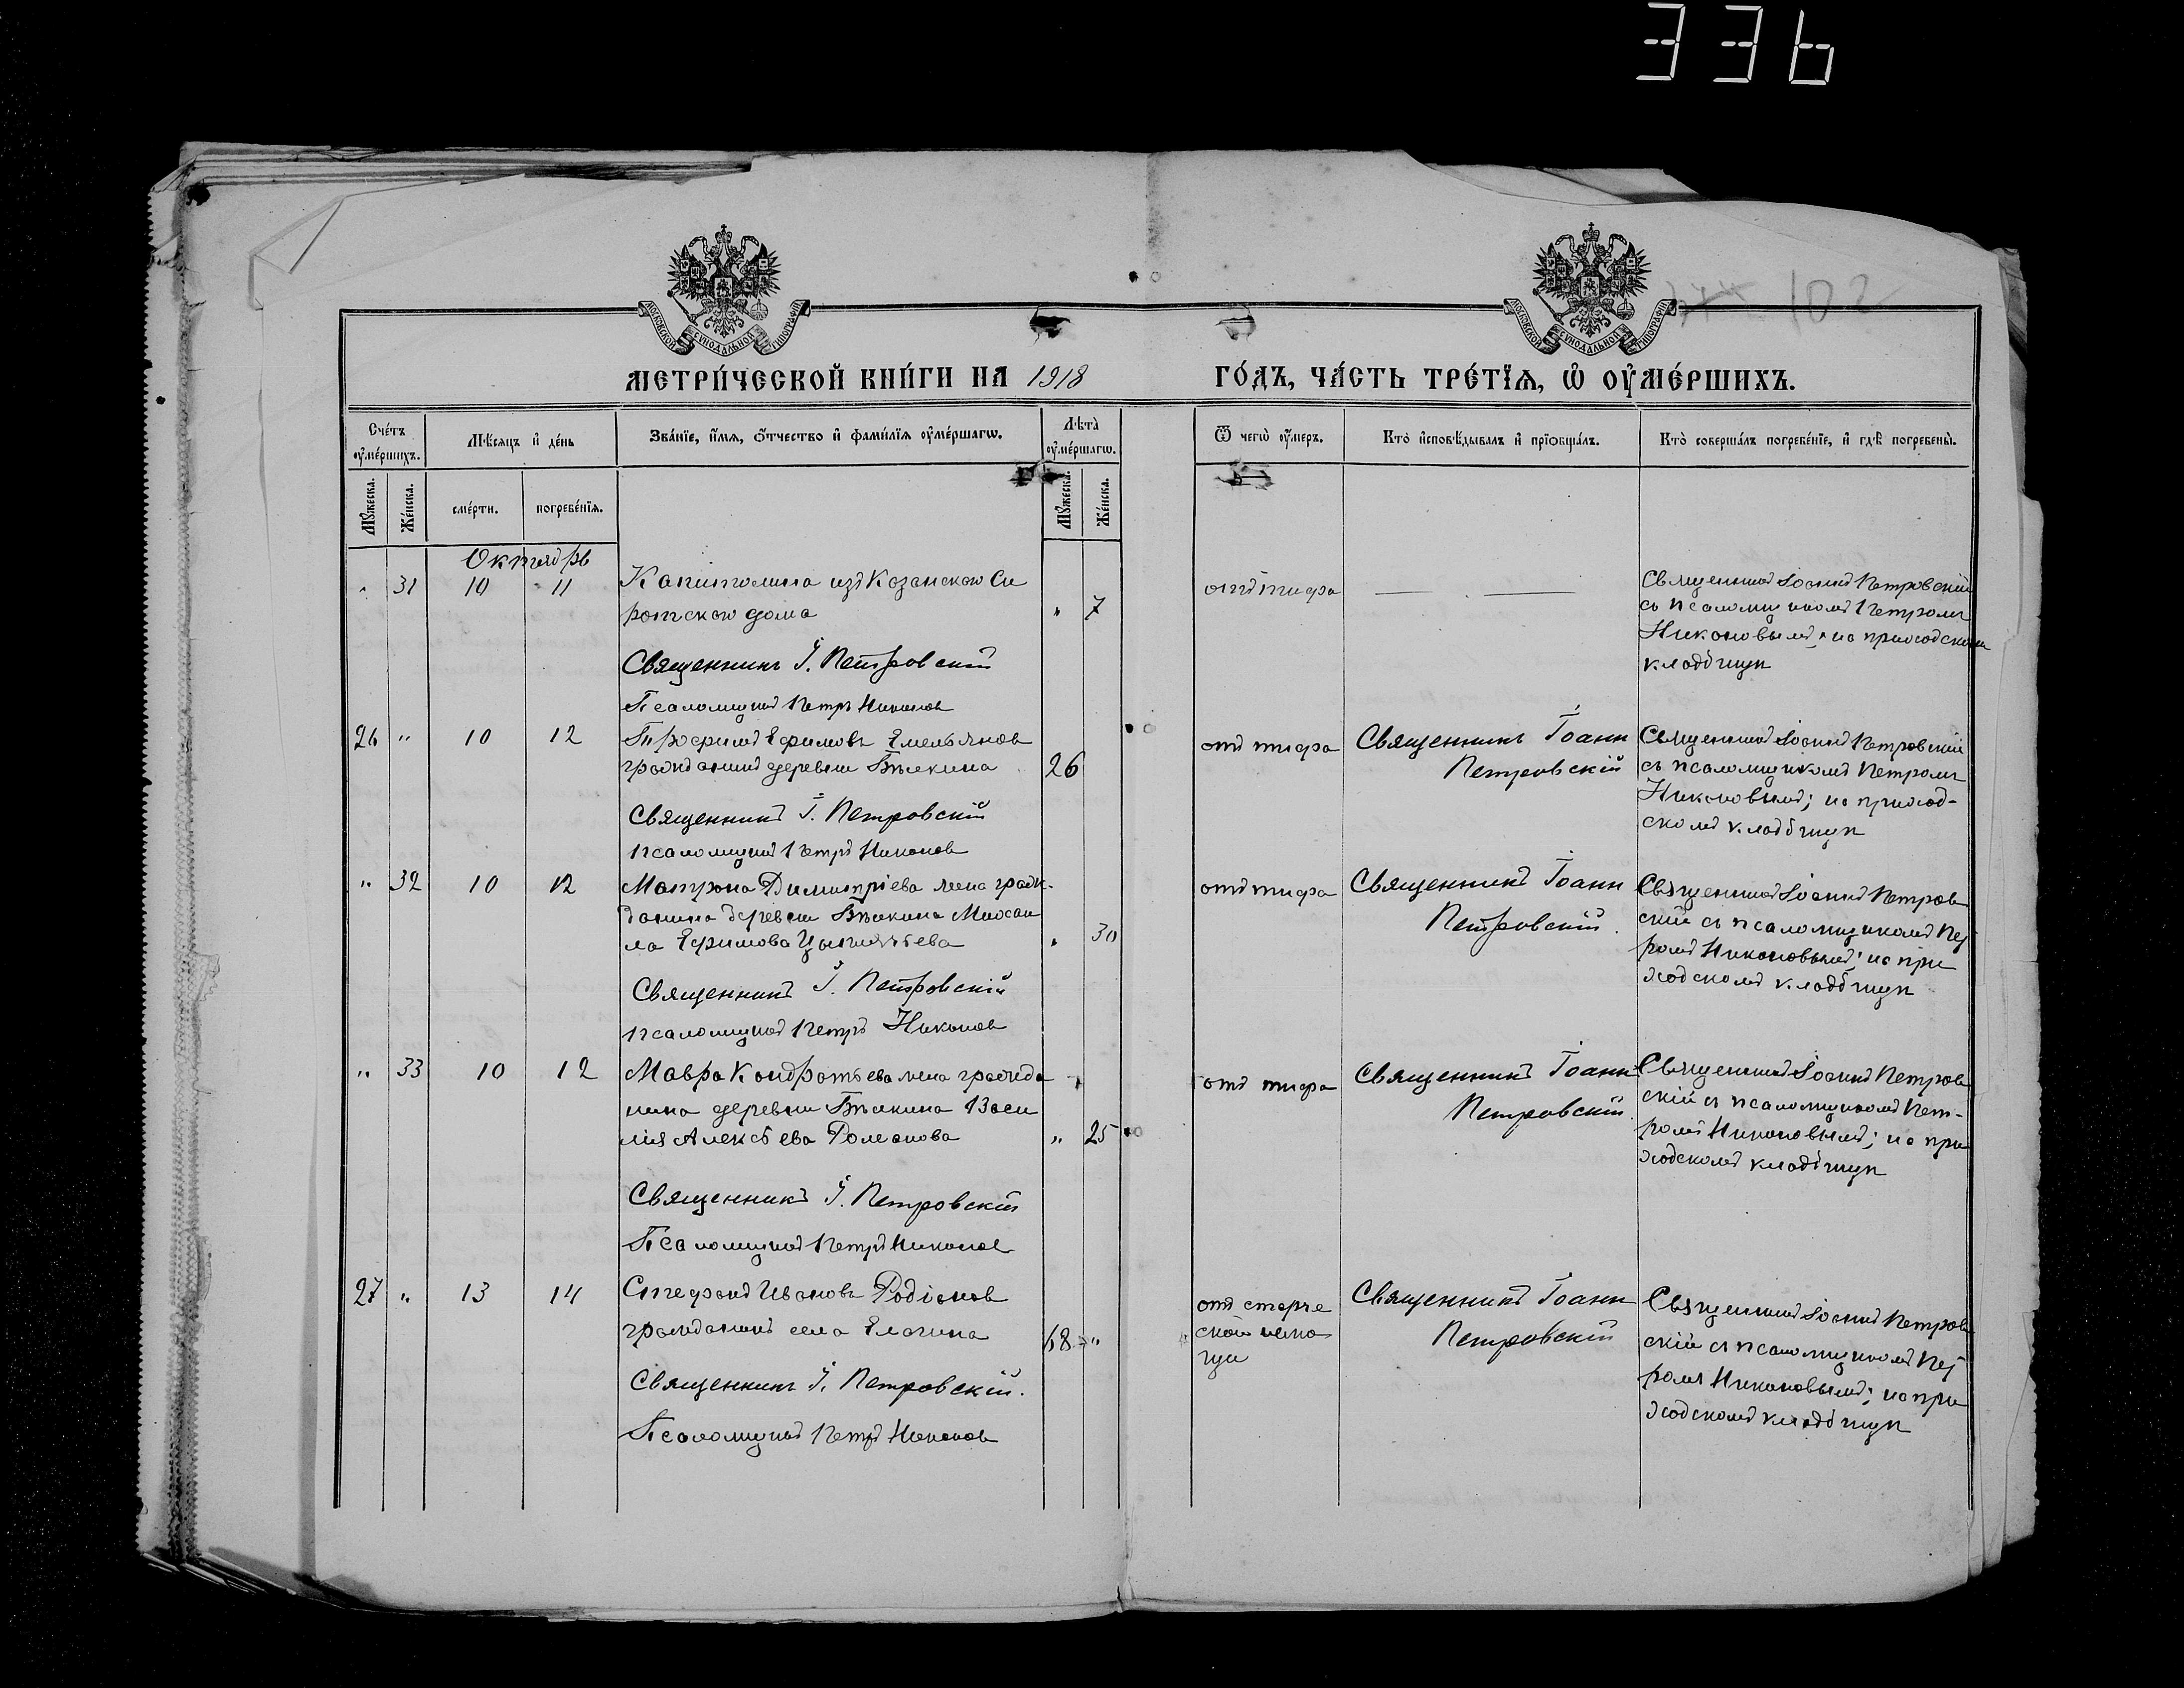 336
102
МОСКОВСКОЙ СѴНОДАЛЬНОЙ ТИПОГРАФІИ
МОСКОВСКОЙ СѴНОДАЛЬНОЙ ТИПОГРАФІИ
МЕТРИ́ЧЕСКОЙ КНИ́ГИ НА 1918 ГО́ДЪ, ЧА́СТЬ ТРЕ́ТЇѦ, Ѡ҆ ОУ҆МЕ́РШИХЪ.
Сче́тъ оу҆ме́ршихъ.
Мѣ́сяцъ и҆ де́нь
Зва́нїе, и҆́мя, ѻ҆́тчество и҆ фами́лїя оу҆ме́ршагѡ.
Лѣ́та̀ оу҆ме́ршагѡ.
Ѿ чегѡ̀ оу҆́меръ.
Кто̀ и҆сповѣ́дывалъ и҆ прїѡбща́лъ.
Кто̀ соверша́лъ погребе́нїе, и҆ гдѣ̀ погребены̀.
Мꙋ́жеска.
Же́нска.
сме́рти.
погребе́нїя.
Мꙋ́жеска.
Же́нска.
Октябрь
" 31 10 11 Капитолина изъ Казанского Си
ротского дома " 7
Священникъ І. Петровскій
Псаломщикъ Петръ Никонов
отъ тифа
Священникъ Іоаннъ Петровскій
съ псаломщикомъ Петромъ
Никоновымъ; на приходском
кладбищѣ
26 " 10 12 Трофимъ Ефимовъ Емельянов
гражданинъ деревни Бѣлкина 26
Священникъ І. Петровскій
псаломщикъ Петръ Никонов
отъ тифа
Священникъ Іоанн
Петровскій
Священникъ Іоаннъ Петровскій
съ псаломщикомъ Петромъ
Никоновымъ; на приход-
скомъ кладбищѣ
" 32 10 12 Матрона Димитріева жена граж-
данина деревни Бѣлкина Михаи
ла Ефимова " 30
Священникъ І. Петровскій
псаломщикъ Петръ Никонов
отъ тифа
Священникъ Іоанн
Петровскій.
Священникъ Іоаннъ Петров
скій съ псаломщикомъ Пет
ромъ Никоновымъ; на при
ходскомъ кладбищѣ
" 33 10 12 Мавра Кондратьева жена гражда
нина деревни Бѣлкина Васи
лія Алексѣева Романова " 25
Священникъ І. Петровскій
Псаломщикъ Петръ Никонов
отъ тифа
Священникъ Іоанн
Петровскій.
Священникъ Іоаннъ Петров
скій съ псаломщикомъ Пет-
ромъ Никоновымъ; на при
ходскомъ кладбищѣ
27 " 13 14 Стефанъ Ивановъ Родіонов
гражданинъ села Елагина 68 "
Священникъ І. Петровскій.
Псаломщикъ Петръ Никонов
отъ старче
ской немо
щи
Священникъ Іоанн
Петровскій
Священникъ Іоаннъ Петров
скій съ псаломщикомъ Пет
ромъ Никоновымъ; на при
ходскомъ кладбищѣ